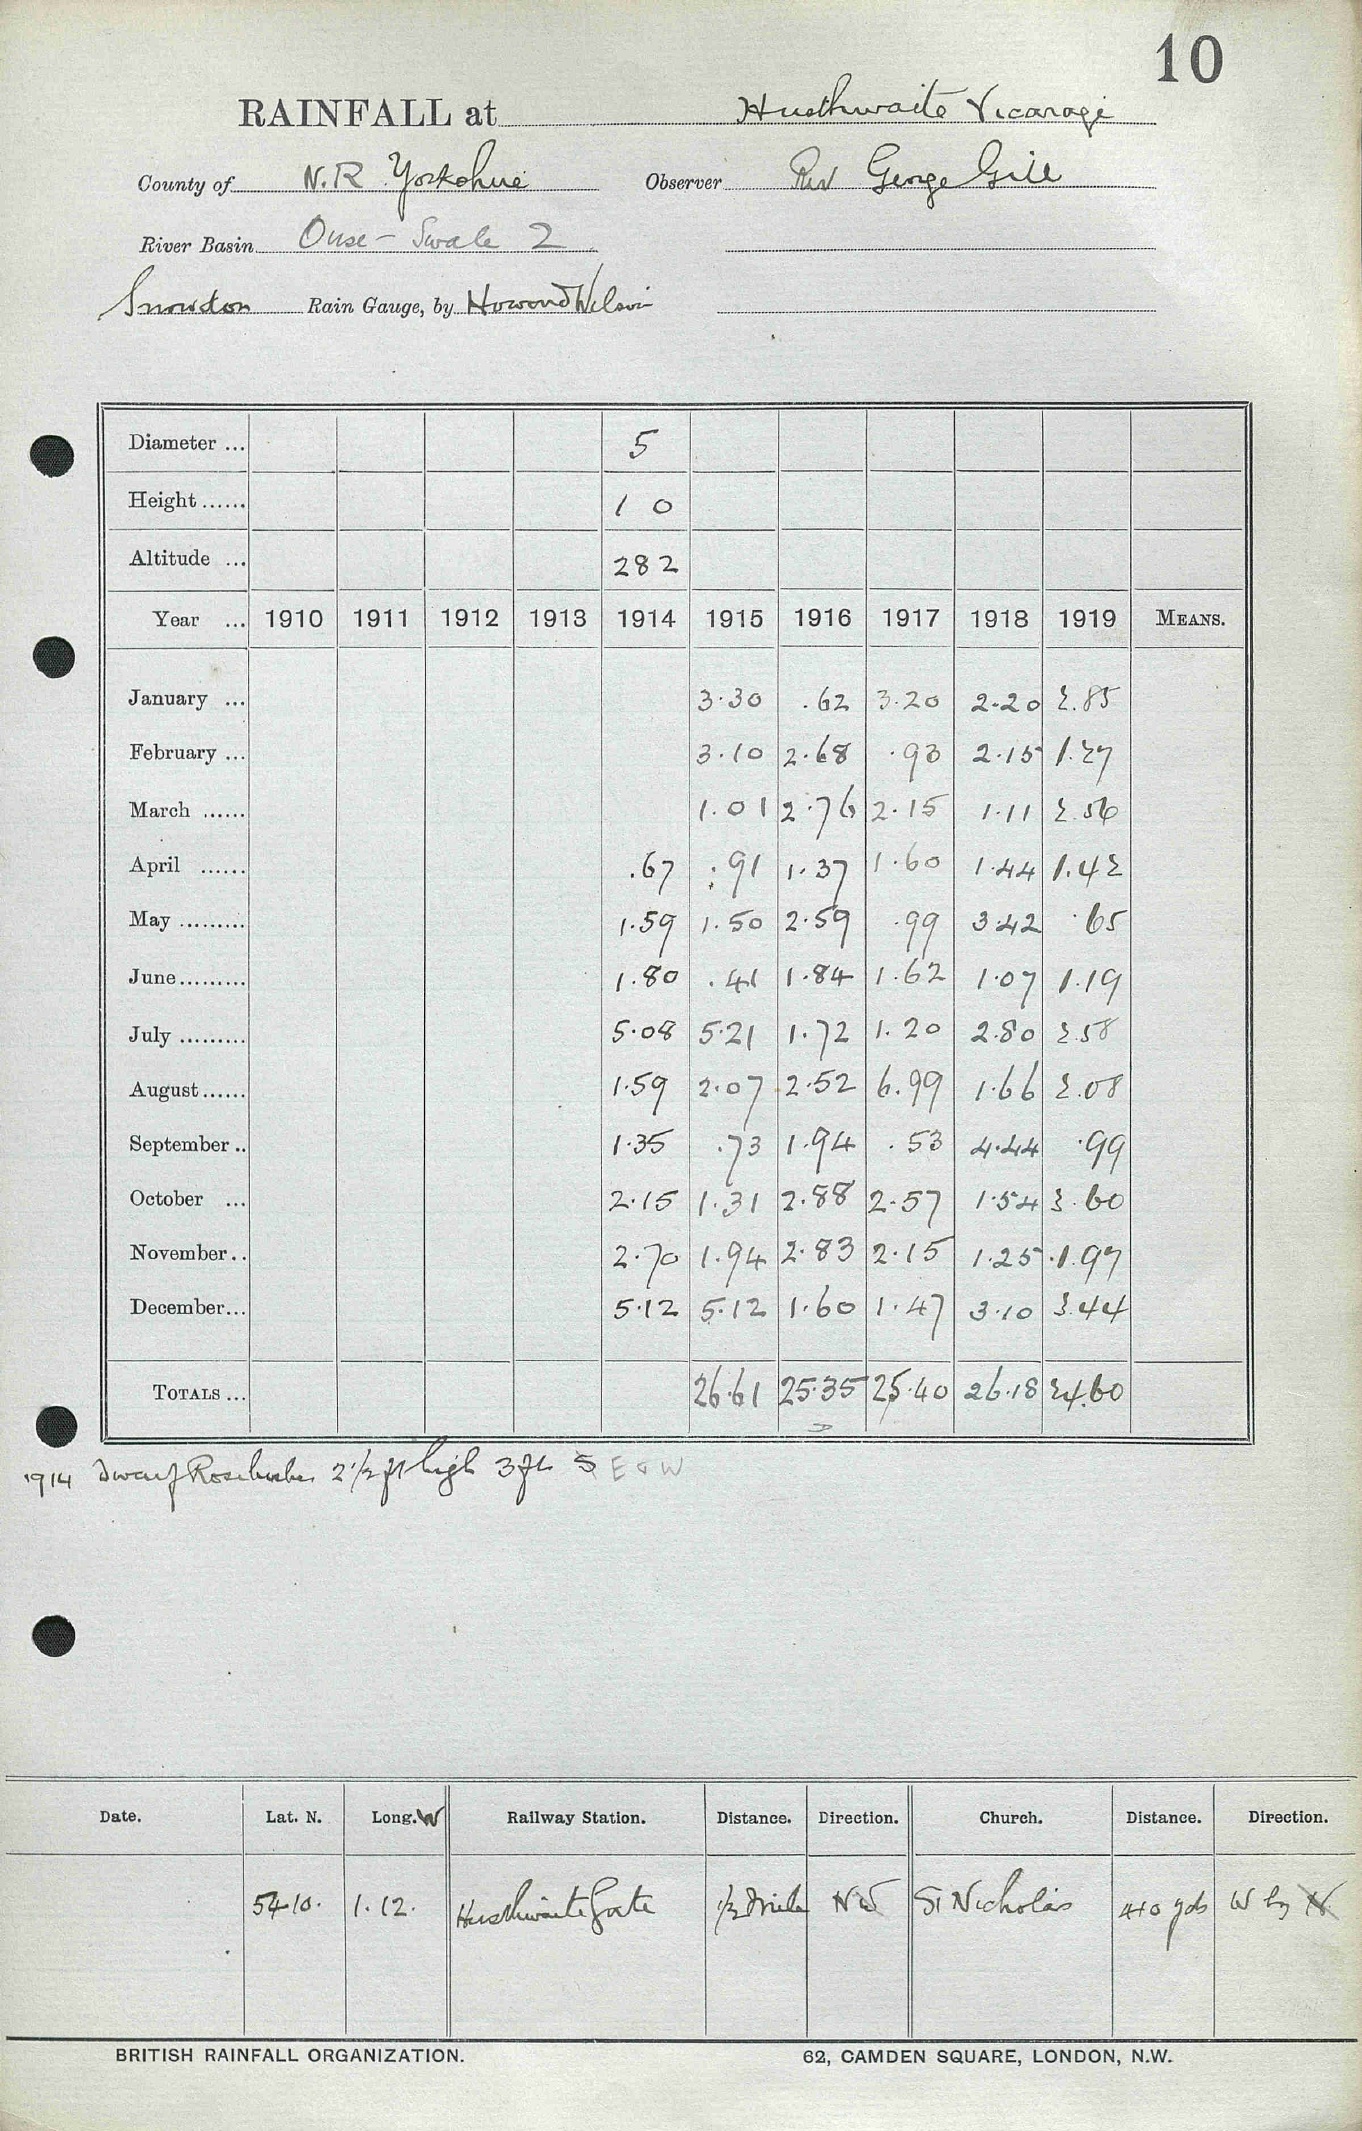 10
RAINFALL at Husthwaite Vicarage
County of N.R Yorkshire Observer Rev George Gill
River Basin Ouse - Swale 2
Snowdon Rain Gauge, by Howard Wilson
Diameter ... 5
Height ...... 1 0
Altitude ... 282
Year ... 1910 1911 1912 1913 1914 1915 1916 1917 1918 1919 MEANS.
January ... 3.30 .62 3.20 2.20 2.85
February ... 3.10 2.68 .93 2.15 1.27
March ...... 1.01 2.76 2.15 1.11 2.56
April ...... .67 .91 1.37 1.60 1.44 1.42
May ......... 1.59 1.50 2.59 .99 3.42 .65
June......... 1.80 .41 1.84 1.62 1.07 1.19
July ......... 5.08 5.21 1.72 1.20 2.80 2.58
August...... 1.59 2.07 2.52 6.99 1.66 2.08
September .. 1.35 .73 1.94 .53 4.44 .99
October ... 2.15 1.31 2.88 2.57 1.54 3.60
November .. 2.70 1.94 2.83 2.15 1.25 1.97
December... 5.12 5.12 1.60 1.47 3.10 3.44
TOTALS ... 26.61 25.35 25.40 26.18 24.60
1914 Dwarf Rosebushes 2½ ft high 3 ft S E & W
Date. Lat. N. Long. W Railway Station. Distance. Direction. Church. Distance. Direction.
54.10. 1.12. Husthwaite Gate ½ Mile NW St Nicholas 40 yds W by N
BRITISH RAINFALL ORGANIZATION. 62, CAMDEN SQUARE, LONDON, N.W.